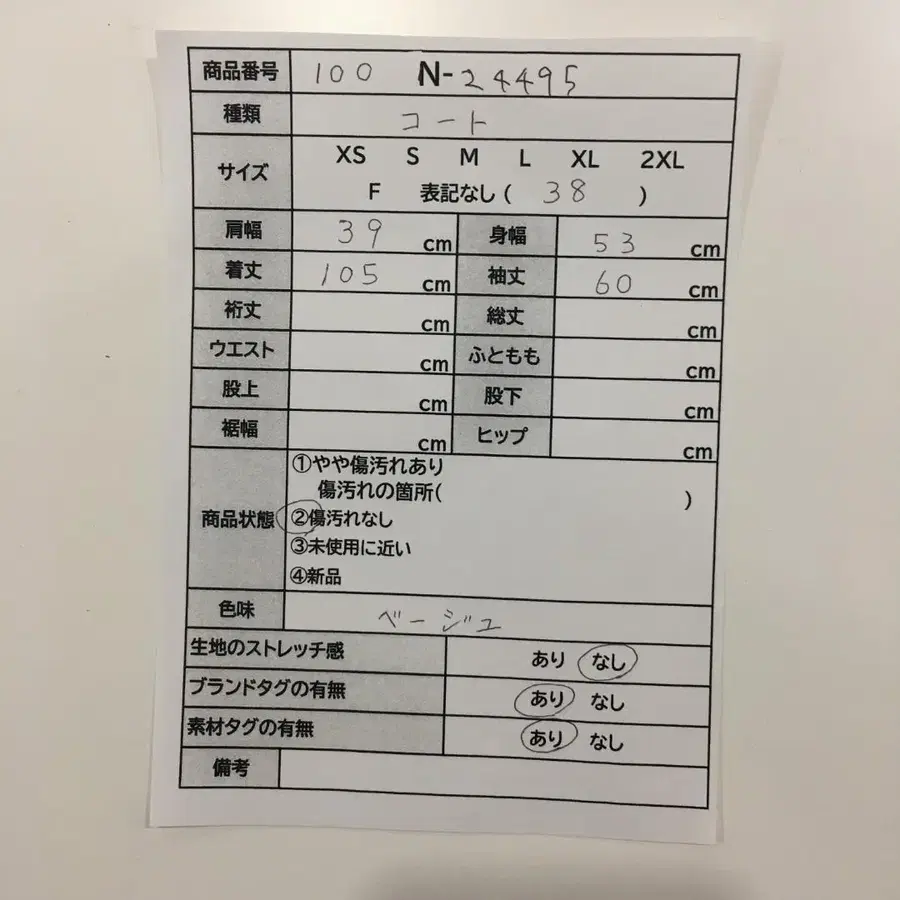 商品番号 100 N-24495
種類 コート
サイズ XS S M L XL 2XL
F 表記なし ( 38 )
肩幅 39 cm 身幅 53 cm
着丈 105 cm 袖丈 60 cm
裄丈 cm 総丈 cm
ウエスト cm ふともも cm
股上 cm 股下 cm
裾幅 cm ヒップ cm
商品状態
①やや傷汚れあり
傷汚れの箇所( )
②傷汚れなし
③未使用に近い
④新品
色味 ベージュ
生地のストレッチ感 あり なし
ブランドタグの有無 あり なし
素材タグの有無 あり なし
備考